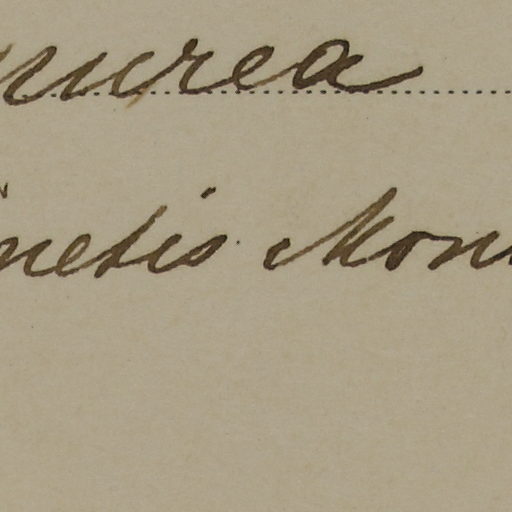 purea
N
netis Mon